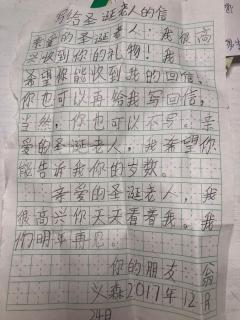 写给圣诞老人的信
亲爱的圣诞老人：我很高
兴收到你的礼物！我
希望你能收到我的回信，
你也可以再给我写回信，
当然，你也可以不写。亲
爱的圣诞老人，我希望你
能告诉我你的岁数。
亲爱的圣诞老人，我
很高兴你天天看着我。我
们明年再见。
你的朋友：翁
义森2017年12月
24日